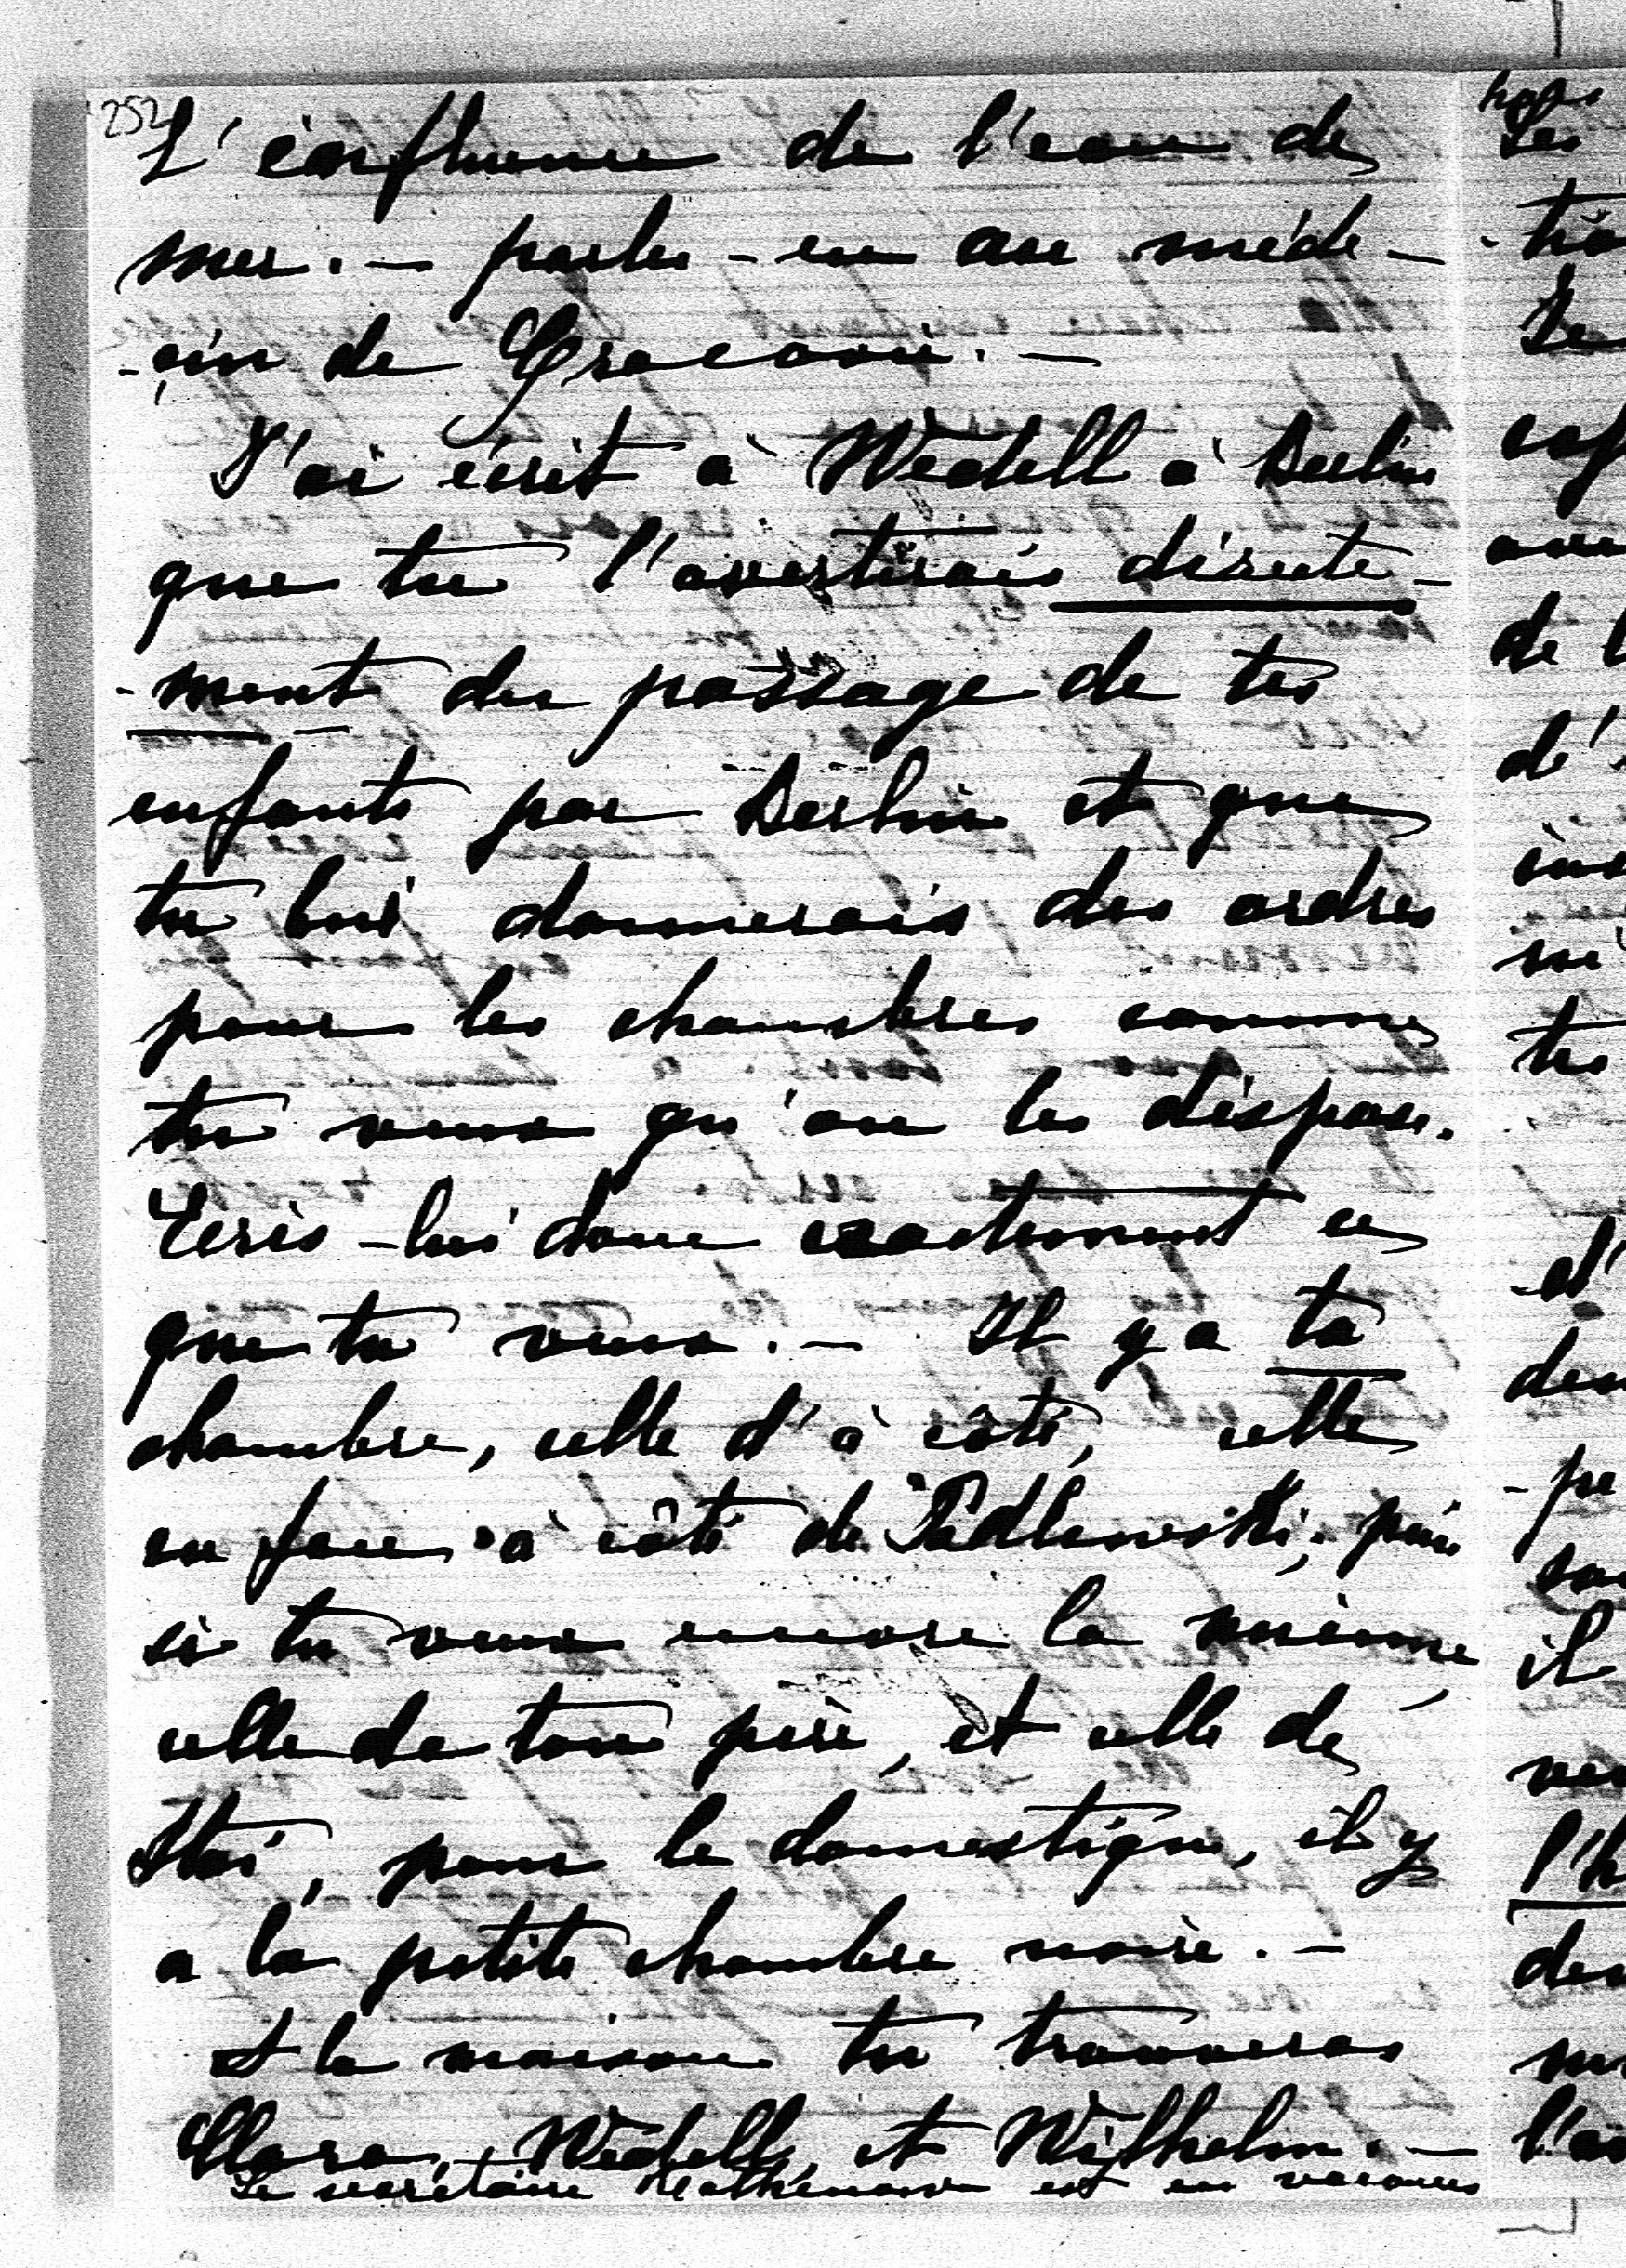 252
L'influence de l'eau de
mer. — parles-en au méde-
-cin de Cracovie. —
J'ai écrit à Wedell à Berlin
que tu l'avertirais directe-
-ment du passage de tes
enfants par Berlin et que
tu lui donnerais des ordres
pour les chambres comme
tu veux qu'on les dispose.
Ecris-lui donc exactement ce
que tu veux. — Il y a ta
chambre, celle d'à côté, celle
en face à côté de Padlewski; puis
si tu veux encore la mienne,
celle de ton père, et celle de
pour le domestique, il y
a la petite chambre noire. —
A la maison tu trouveras
Clara, Wedell, et Wilhelm. —
Le secrétaire est en vacances